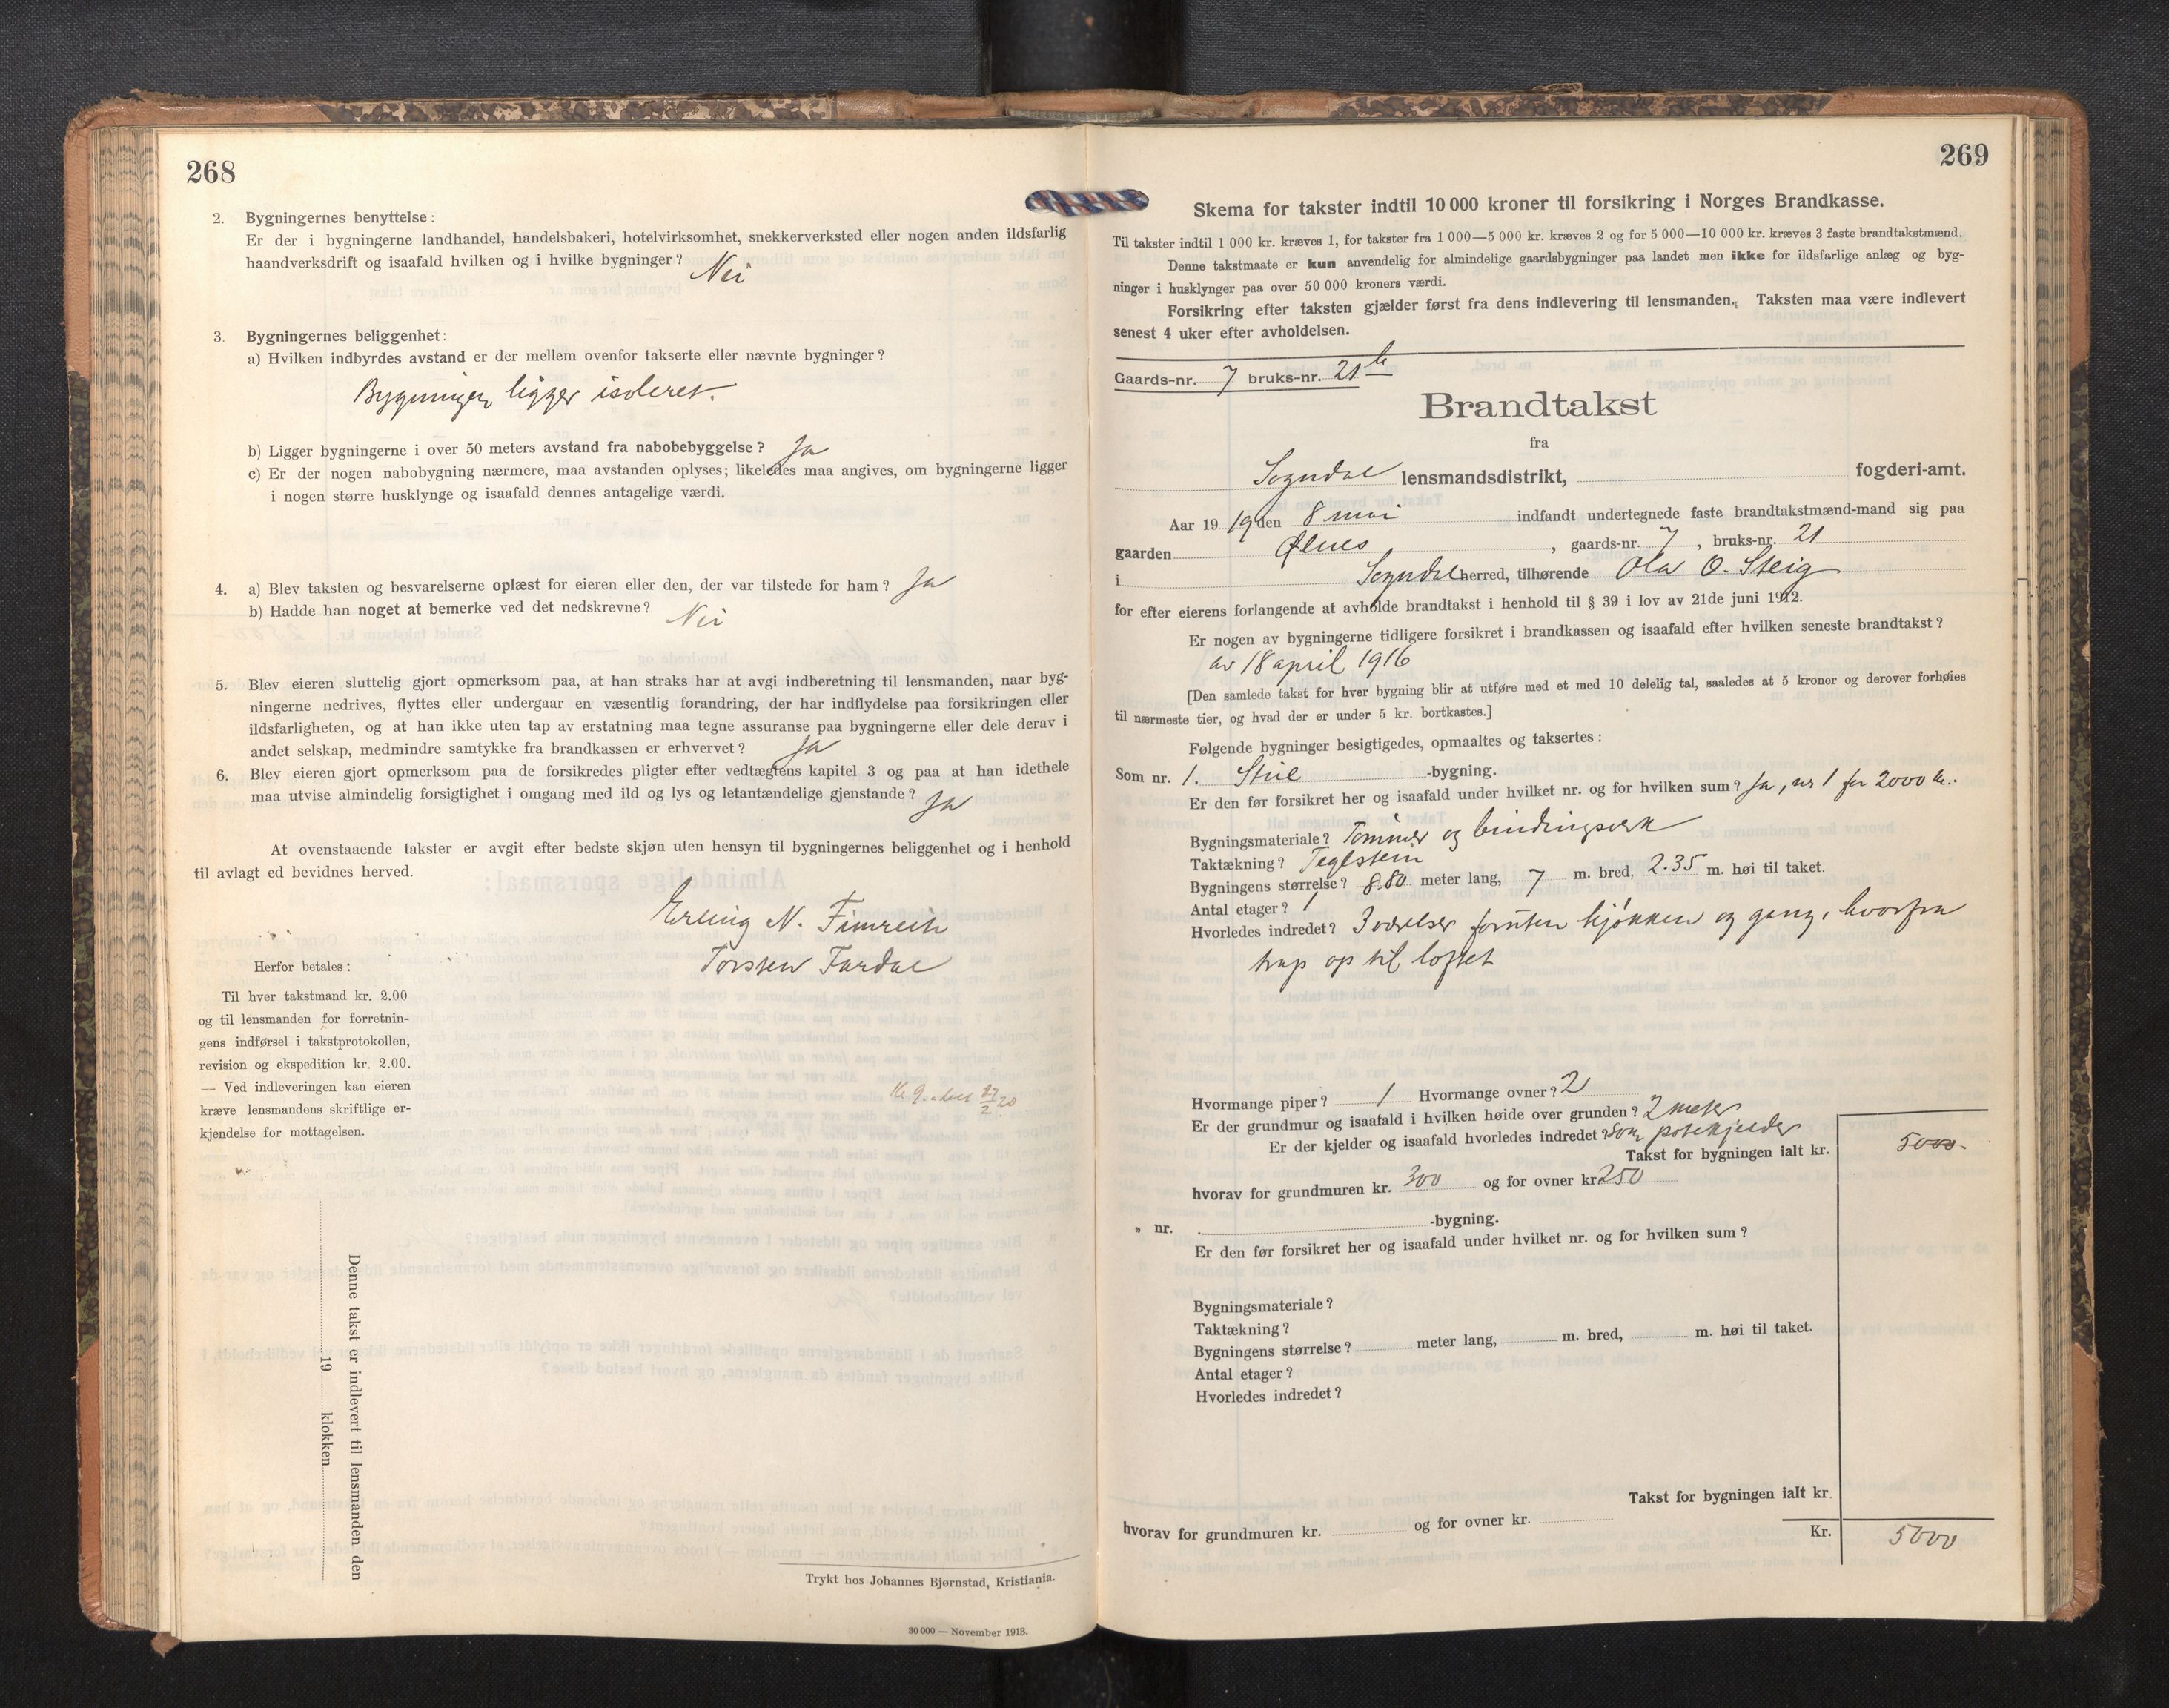 268
2. Bygningernes benyttelse:
Er der i bygningerne landhandel, handelsbakeri, hotelvirksomhet, snekkerverksted eller nogen anden ildsfarlig
haandverksdrift og isaafald hvilken og i hvilke bygninger? Nei
3. Bygningernes beliggenhet:
a) Hvilken indbyrdes avstand er der mellem ovenfor takserte eller nævnte bygninger?
Bygningen ligger isoleret.
b) Ligger bygningerne i over 50 meters avstand fra nabobebyggelse? Ja
c) Er der nogen nabobygning nærmere, maa avstanden oplyses; likeledes maa angives, om bygningerne ligger
i nogen større husklynge og isaafald dennes antagelige værdi.
4. a) Blev taksten og besvarelserne oplæst for eieren eller den, der var tilstede for ham? Ja
b) Hadde han noget at bemerke ved det nedskrevne? Nei
5. Blev eieren sluttelig gjort opmerksom paa, at han straks har at avgi indberetning til lensmanden, naar byg-
ningerne nedrives, flyttes eller undergaar en væsentlig forandring, der har indflydelse paa forsikringen eller
ildsfarligheten, og at han ikke uten tap av erstatning maa tegne assuranse paa bygningerne eller dele derav i
andet selskap, medmindre samtykke fra brandkassen er erhvervet? Ja
6. Blev eieren gjort opmerksom paa de forsikredes pligter efter vedtægtens kapitel 3 og paa at han idethele
maa utvise almindelig forsigtighet i omgang med ild og lys og letantændelige gjenstande? Ja
At ovenstaaende takster er avgit efter bedste skjøn uten hensyn til bygningernes beliggenhet og i henhold
til avlagt ed bevidnes herved.
Erling N. Fimreite
Torsten Fardal
Herfor betales:
Til hver takstmand kr. 2.00
og til lensmanden for forretnin-
gens indførsel i takstprotokollen,
revision og ekspedition kr. 2.00.
— Ved indleveringen kan eieren
kræve lensmandens skriftlige er-
kjendelse for mottagelsen.
Denne takst er indlevert til lensmanden den
19 klokken
Trykt hos Johannes Bjørnstad, Kristiania.
30 000 — November 1913.
269
Skema for takster indtil 10 000 kroner til forsikring i Norges Brandkasse.
Til takster indtil 1 000 kr. kræves 1, for takster fra 1 000—5 000 kr. kræves 2 og for 5 000—10 000 kr. kræves 3 faste brandtakstmænd.
Denne takstmaate er kun anvendelig for almindelige gaardsbygninger paa landet men ikke for ildsfarlige anlæg og byg-
ninger i husklynger paa over 50 000 kroners værdi.
Forsikring efter taksten gjælder først fra dens indlevering til lensmanden. Taksten maa være indlevert
senest 4 uker efter avholdelsen.
Gaards-nr. 7 bruks-nr. 21
Brandtakst
fra
Sogndal lensmandsdistrikt, fogderi-amt.
Aar 19 19 den 8 mai indfandt undertegnede faste brandtakstmænd-mand sig paa
gaarden Ølnes, gaards-nr. 7, bruks-nr. 21
i Sogndal herred, tilhørende Ola O. Steig
for efter eierens forlangende at avholde brandtakst i henhold til § 39 i lov av 21de juni 1912.
Er nogen av bygningerne tidligere forsikret i brandkassen og isaafald efter hvilken seneste brandtakst?
av 18 april 1916
[Den samlede takst for hver bygning blir at utføre med et med 10 delelig tal, saaledes at 5 kroner og derover forhøies
til nærmeste tier, og hvad der er under 5 kr. bortkastes.]
Følgende bygninger besigtigedes, opmaaltes og taksertes:
Som nr. 1. Stue -bygning.
Er den før forsikret her og isaafald under hvilket nr. og for hvilken sum? Ja, nr 1 for 2000 kr.
Bygningsmateriale? Tømmer og bindingsverk
Taktækning? Teglstein
Bygningens størrelse? 8.80 meter lang, 7 m. bred, 2.35 m. høi til taket.
Antal etager? 1
Hvorledes indredet? 3 værelser foruten kjøkken og gang, hvorfra
trap op til loftet
Hvormange piper? 1 Hvormange ovner? 2
Er der grundmur og isaafald i hvilken høide over grunden? 2 meter
Er der kjelder og isaafald hvorledes indredet? Som potetkjelder
Takst for bygningen ialt kr. 5000.
hvorav for grundmuren kr. 300 og for ovner kr. 250
„ nr. -bygning.
Er den før forsikret her og isaafald under hvilket nr. og for hvilken sum?
Bygningsmateriale?
Taktækning?
Bygningens størrelse? meter lang, m. bred, m. høi til taket.
Antal etager?
Hvorledes indredet?
Takst for bygningen ialt kr.
hvorav for grundmuren kr. og for ovner kr.
Kr. 5000